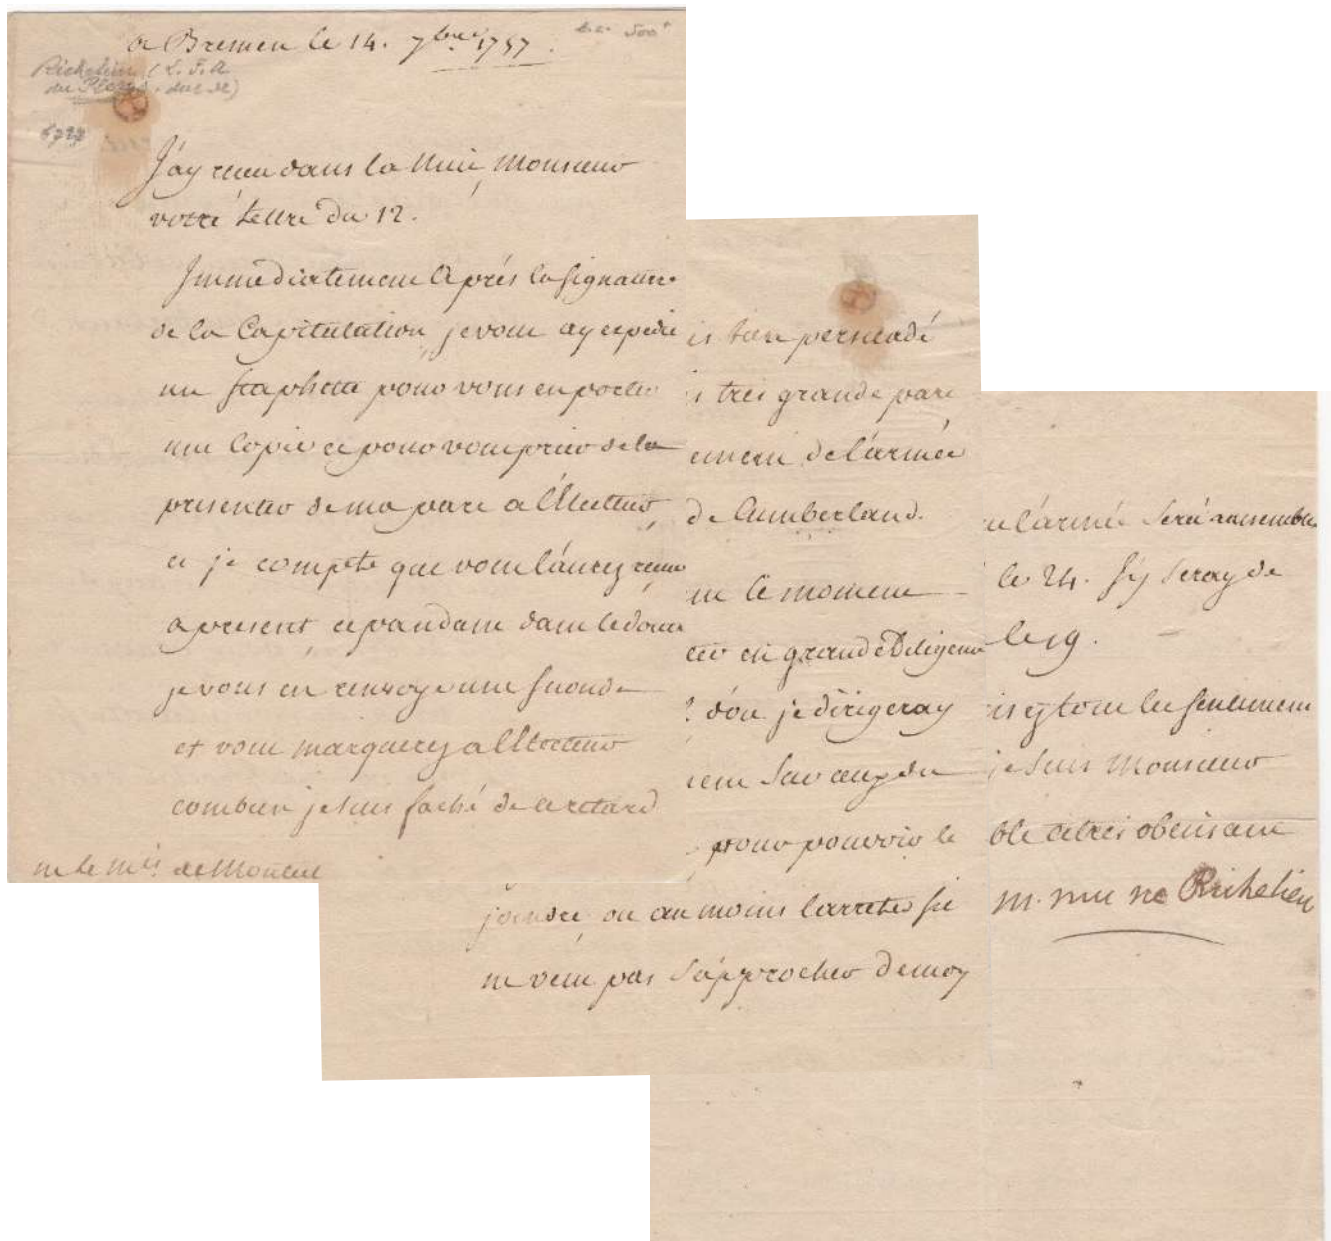 a Bremen le 14. 7bre 1757.
Richelieu (L. F. A
du Plessis, duc de)
J'ay receu dans la Nuit, Monsieur
votre Lettre du 12.
Immediatement Aprés la signature
de la Capitulation, je vous ay expedié
une Staphette pour vous en porter
une Copie et pour vous prier de la
presenter de ma part a l'Electeur,
et je compte que vous l'aurez receue
a present, cependant dans le doute
je vous en renvoye une seconde
et vous marquerez a l'Electeur
combien je suis faché de ce retard
m le mis de Monteil
is bien persuadé
s tres grande part
ement de l'armée
de Cumberland.
ue le moment
ter en grande Diligence
d'ou je dirigeray
ment Sur ceux du
pour pouvoir le
joindre, ou au moins l'arreter s'il
ne veut pas s'approcher de moy
ue l'armée Sera rassemblée
le 24. J'y Seray de
le 19.
is et tous les sentiments
je Suis Monsieur
ble et tres obeissant
Richelieu